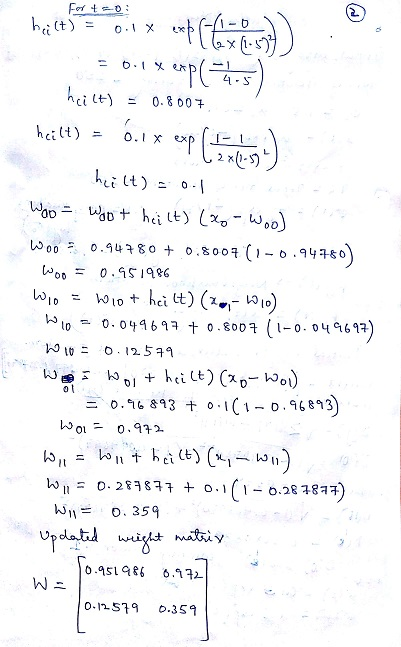 ②
For t=0:
hci(t) = 0.1 x exp(-(1-0)/(2x(1.5)²))
= 0.1 x exp(-1/4.5)
hci(t) = 0.8007
hci(t) = 0.1 x exp(1-1/(2x(1.5)²))
hci(t) = 0.1
W00 = W00 + hci(t) (x0 - W00)
W00 = 0.94780 + 0.8007 (1-0.94780)
W00 = 0.951986
W10 = W10 + hci(t) (x1 - W10)
W10 = 0.049697 + 0.8007 (1-0.049697)
W10 = 0.12579
W01 = W01 + hci(t) (x0 - W01)
= 0.96893 + 0.1(1-0.96893)
W01 = 0.972
W11 = W11 + hci(t) (x1 - W11)
W11 = 0.287877 + 0.1(1-0.287877)
W11 = 0.359
Updated weight matrix
W = [0.951986 0.972
0.12579 0.359]